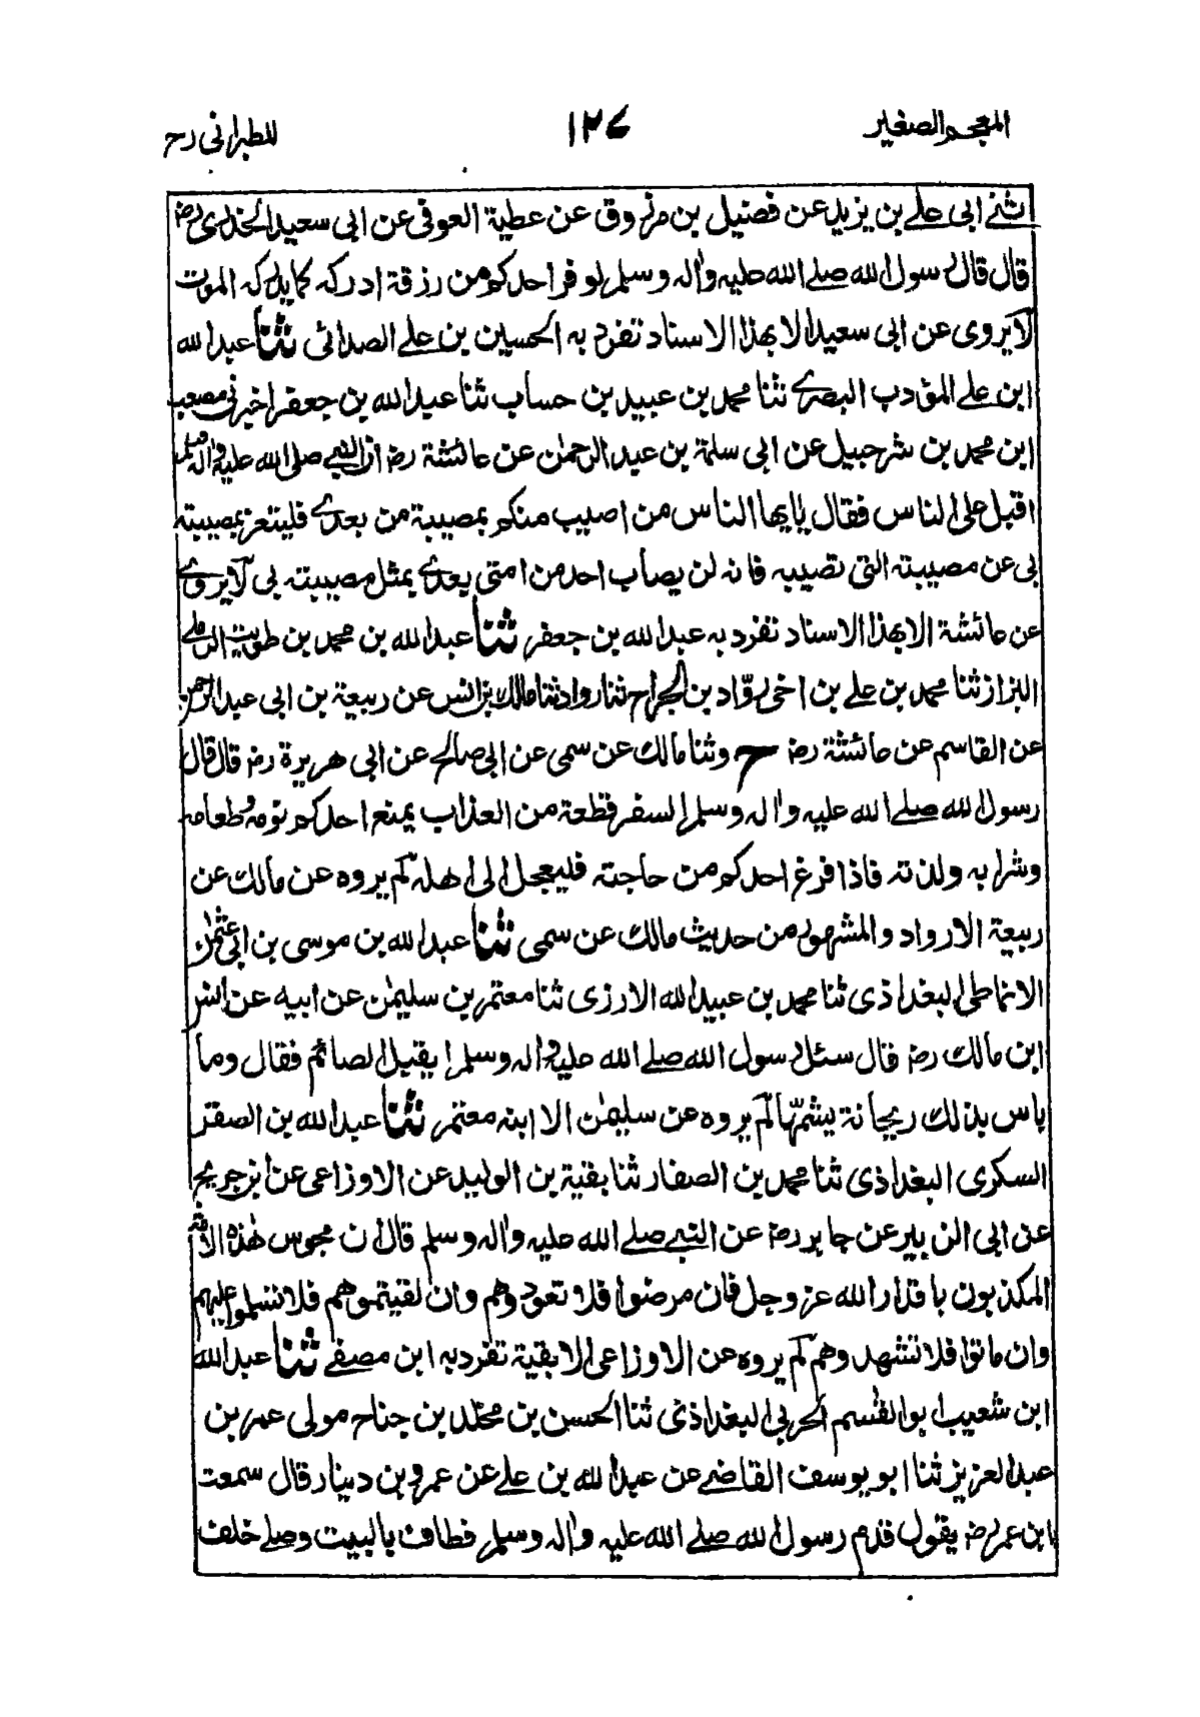 المعجم الصغير ١٢٧ للطبراني رح
ثني ابي علي بن يزيد عن فضيل بن مرزوق عن عطية العوفي عن ابي سعيد الخدري رض
قال قال رسول الله صلى الله عليه واٰله وسلم لو فر احدكم من رزقه ادركه كما يدركه الموت
لا يروى عن ابي سعيد الا بهذا الاسناد تفرد به الحسين بن علي الصدائي ثنا عبد الله
ابن علي المؤدب البصري ثنا محمد بن عبيد بن حساب ثنا عبد الله بن جعفر اخبرني مصعب
ابن محمد بن شرحبيل عن ابي سلمة بن عبد الرحمٰن عن عائشة رض ان النبي صلى الله عليه واٰله وسلم
اقبل على الناس فقال يا ايها الناس من اصيب منكم بمصيبة من بعدي فليتعز بمصيبته
بي عن مصيبته التي تصيبه فانه لن يصاب احد من امتي بعدي بمثل مصيبته بي لا يروى
عن عائشة الا بهذا الاسناد تفرد به عبد الله بن جعفر ثنا عبد الله بن محمد بن طويت الرملي
البزاز ثنا محمد بن علي بن اخي روّاد بن الجراح ثنا رواد ثنا مالك بن انس عن ربيعة بن ابي عبد الرحمن
عن القاسم عن عائشة رض ح وثنا مالك عن سمى عن ابي صالح عن ابي هريرة رض قال قال
رسول الله صلى الله عليه واٰله وسلم السفر قطعة من العذاب يمنع احدكم نومه وطعامه
وشرابه ولذته فاذا فرغ احدكم من حاجته فليعجل الى اهله لم يروه عن مالك عن
ربيعة الا رواد والمشهور من حديث مالك عن سمى ثنا عبد الله بن موسى بن ابي عثمٰن
الانماطي البغداذي ثنا محمد بن عبيد الله الارزى ثنا معتمر بن سليمٰن عن ابيه عن انس
ابن مالك رض قال سئل رسول الله صلى الله عليه واٰله وسلم ا يقبل الصائم فقال وما
باس بذلك ريحانة يشمّها لم يروه عن سليمٰن الا ابنه معتمر ثنا عبد الله بن الصقر
السكرى البغداذي ثنا محمد بن الصفار ثنا بقية بن الوليد عن الاوزاعى عن ابن جريج
عن ابي الزبير عن جابر رض عن النبي صلى الله عليه واٰله وسلم قال ان مجوس هٰذه الامة
المكذبون باقدار الله عز وجل فان مرضوا فلا تعودوهم وان لقيتموهم فلا تسلموا عليهم
وان ماتوا فلا تشهدوهم لم يروه عن الاوزاعى الا بقية تفرد به ابن مصفى ثنا عبد الله
ابن شعيب ابو القٰسم الحربي البغداذي ثنا الحسن بن مخلد بن جناح مولى عمر بن
عبد العزيز ثنا ابو يوسف القاضي عن عبد الله بن علي عن عمرو بن دينار قال سمعت
ابن عمر رض يقول قدم رسول الله صلى الله عليه واٰله وسلم فطاف بالبيت وصلى خلف